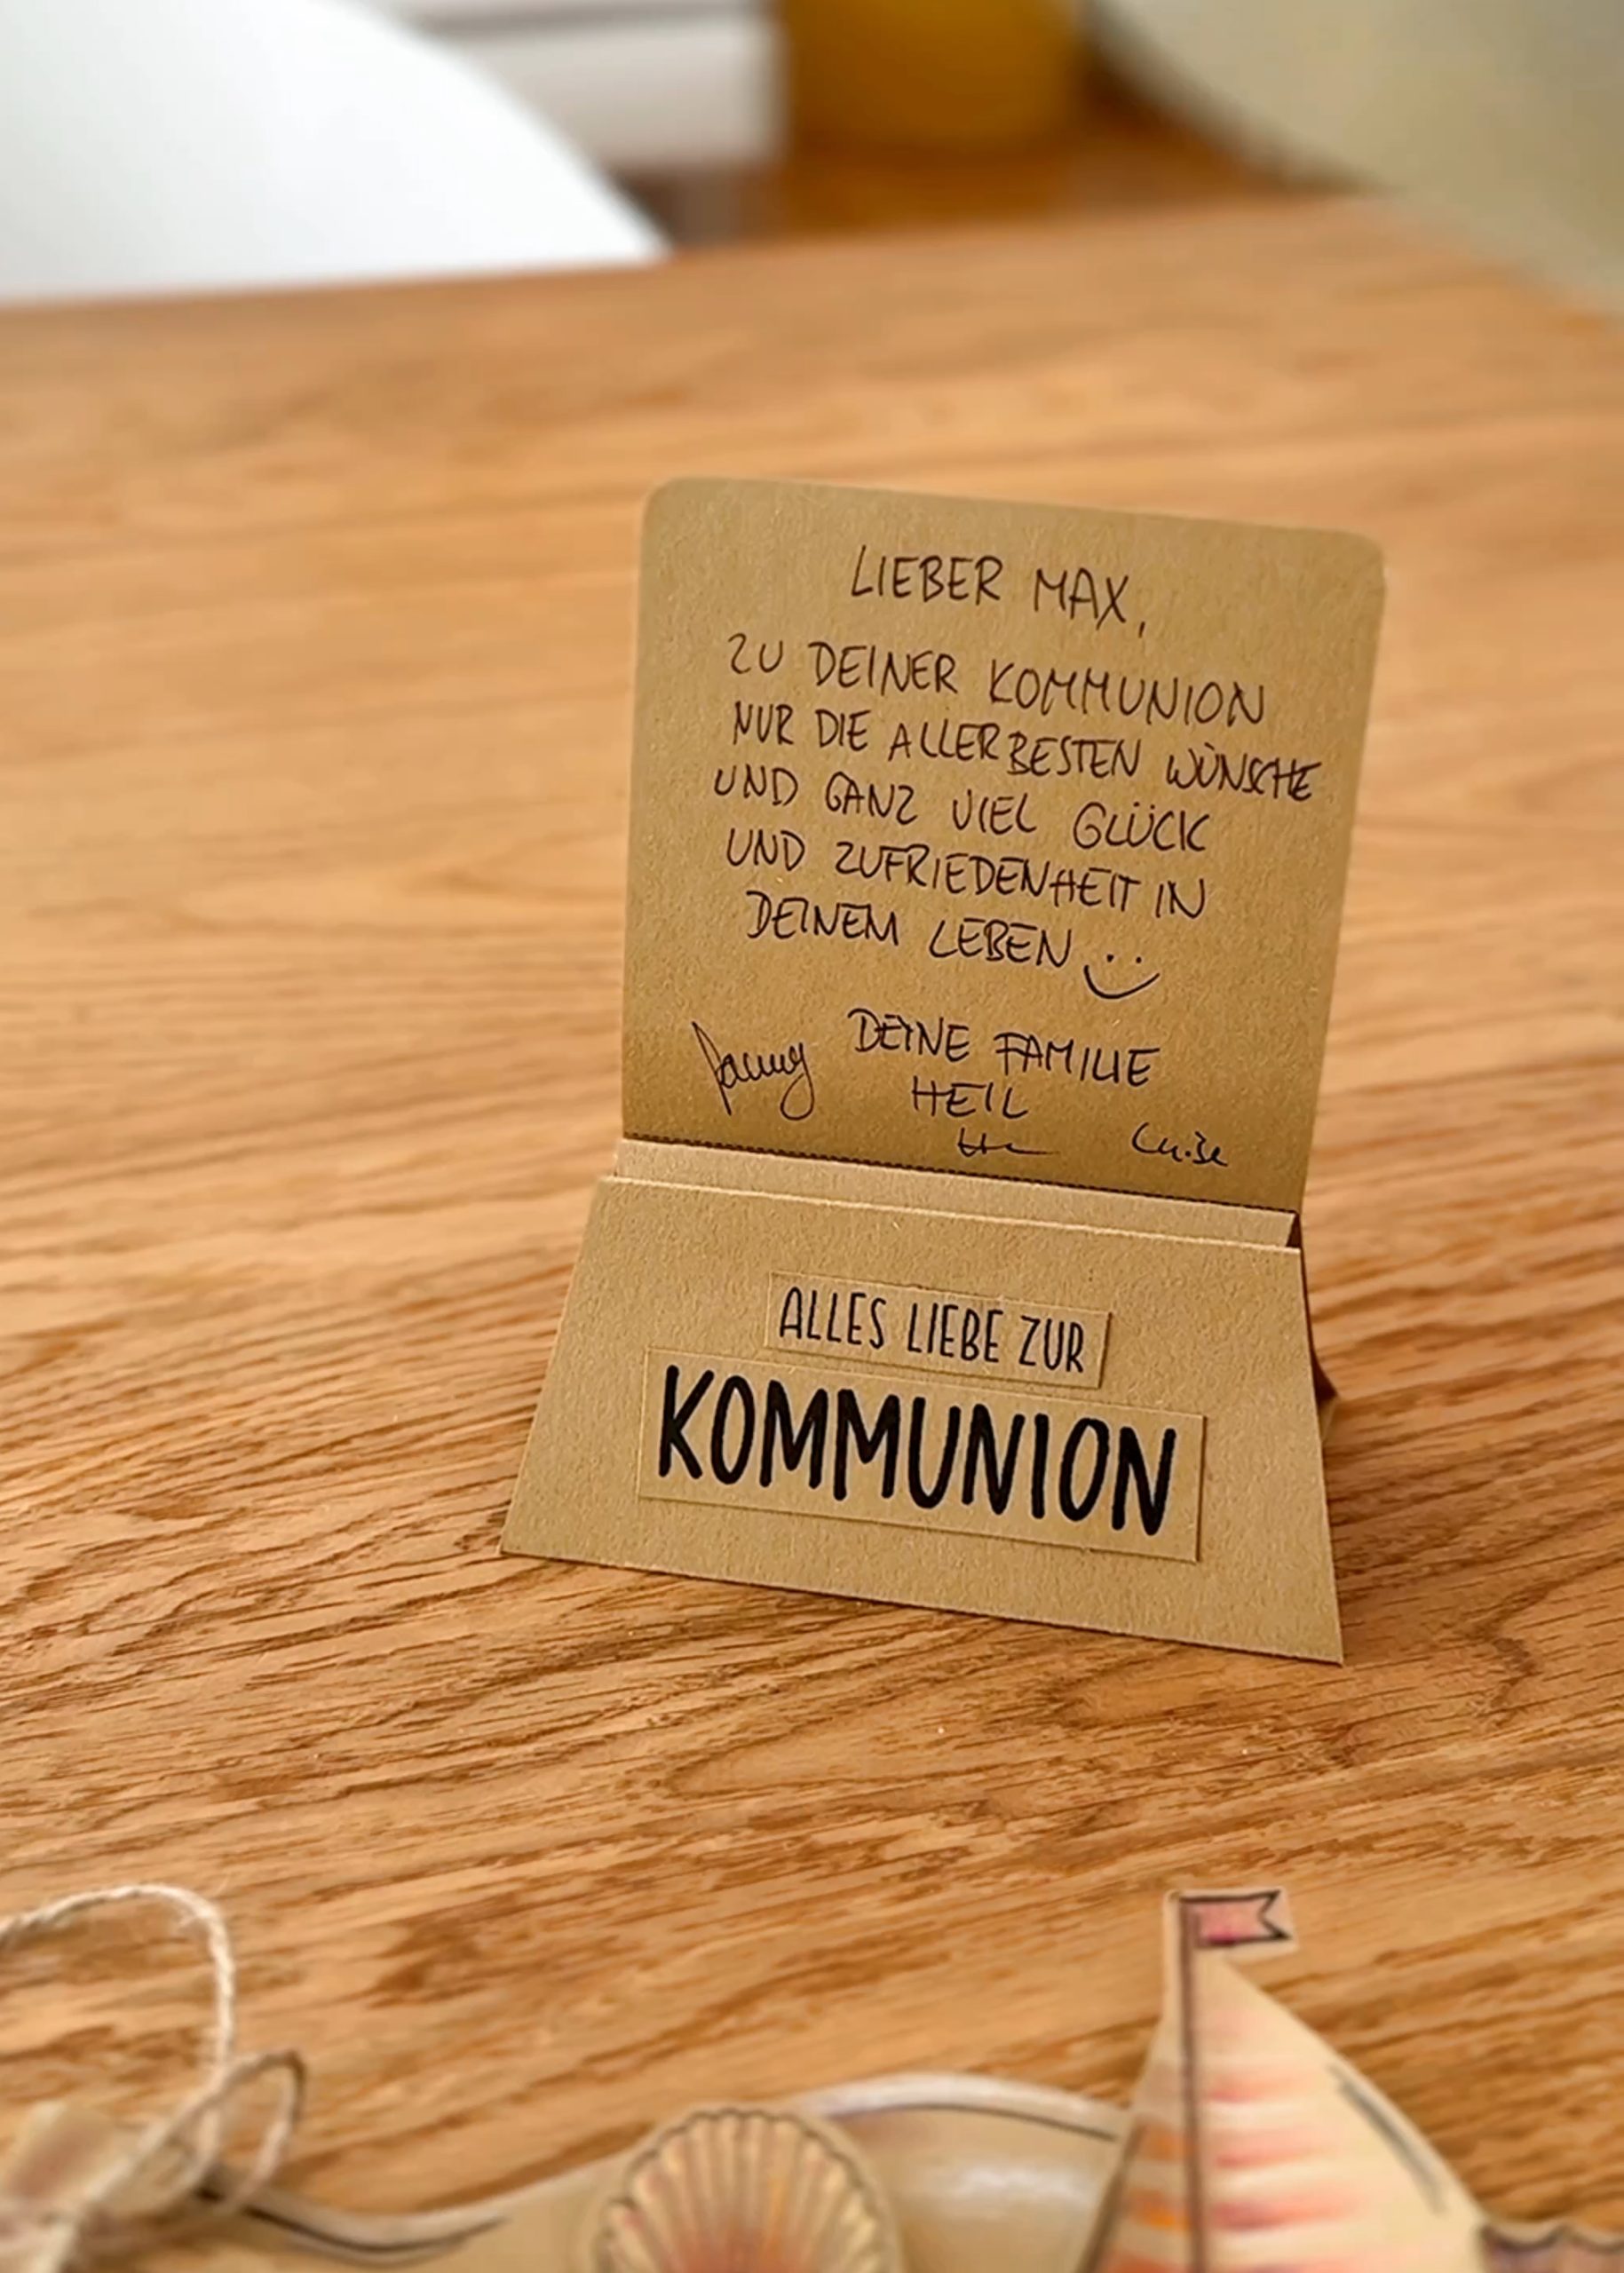 LIEBER MAX,
ZU DEINER KOMMUNION
NUR DIE ALLERBESTEN WÜNSCHE
UND GANZ VIEL GLÜCK
UND ZUFRIEDENHEIT IN
DEINEM LEBEN
DEINE FAMILIE
HEIL
ALLES LIEBE ZUR
KOMMUNION